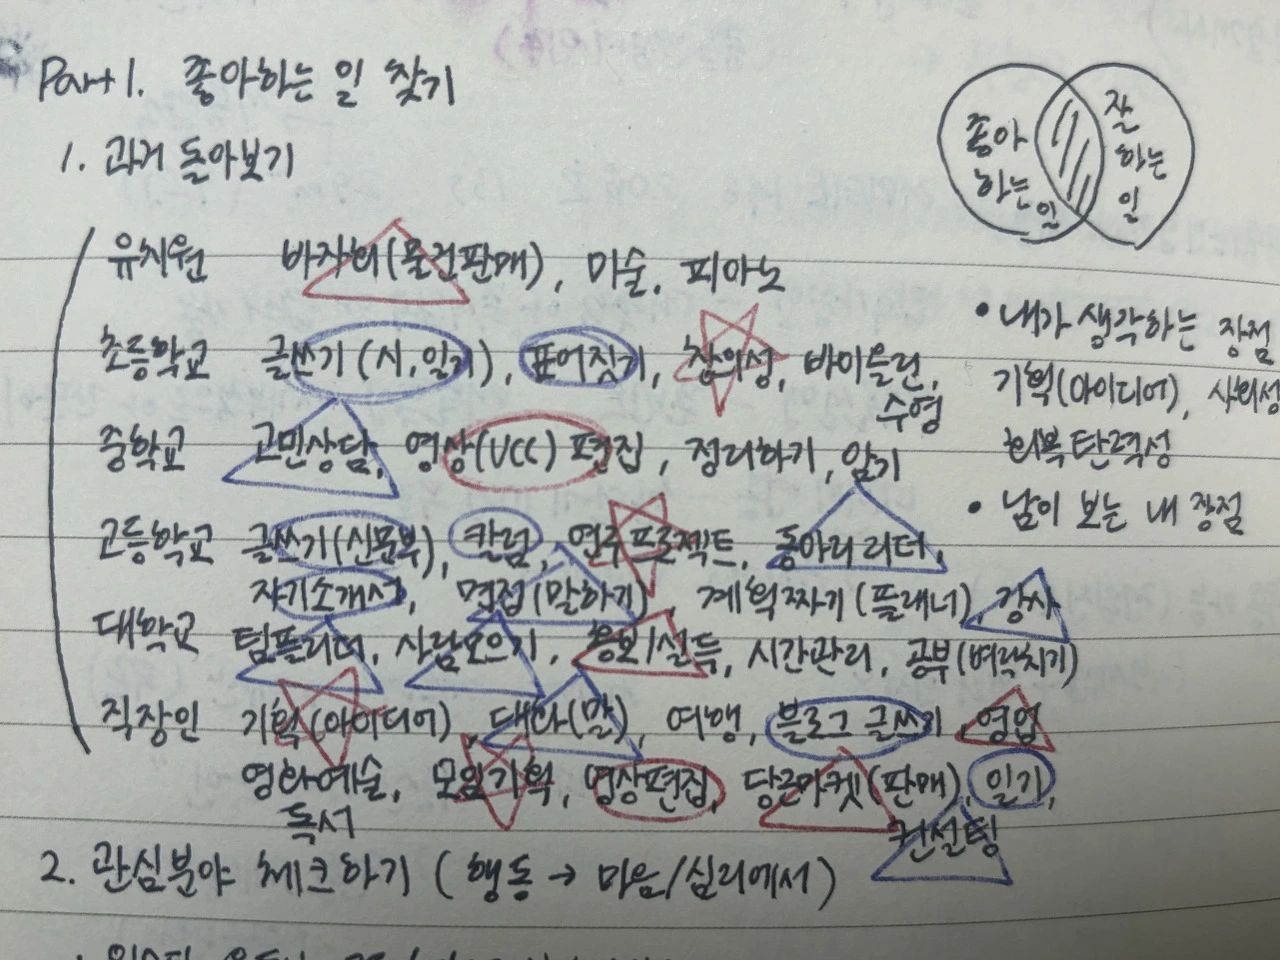 Part 1. 좋아하는 일 찾기
1. 과거 돌아보기
좋아하는 일
잘하는 일
유치원 바자회(물건판매), 미술, 피아노
초등학교 글쓰기(시,일기), 표어짓기, 창의성, 바이올린, 수영
중학교 고민상담, 영상(UCC) 편집, 정리하기, 암기
고등학교 글쓰기(신문부), 칼럼, 연구프로젝트, 동아리 리더,
자기소개서, 면접(말하기), 계획짜기(플래너), 강사
대학교 팀플리더, 사람모으기, 홍보/설득, 시간관리, 공부(벼락치기)
직장인 기획(아이디어), 대화(말), 여행, 블로그 글쓰기, 영업
영화예술, 모임기획, 영상편집, 당근마켓(판매), 일기,
독서 컨설팅
• 내가 생각하는 장점
기획(아이디어), 사회성
회복탄력성
• 남이 보는 내 장점
2. 관심분야 체크하기 (행동 → 마음/심리에서)